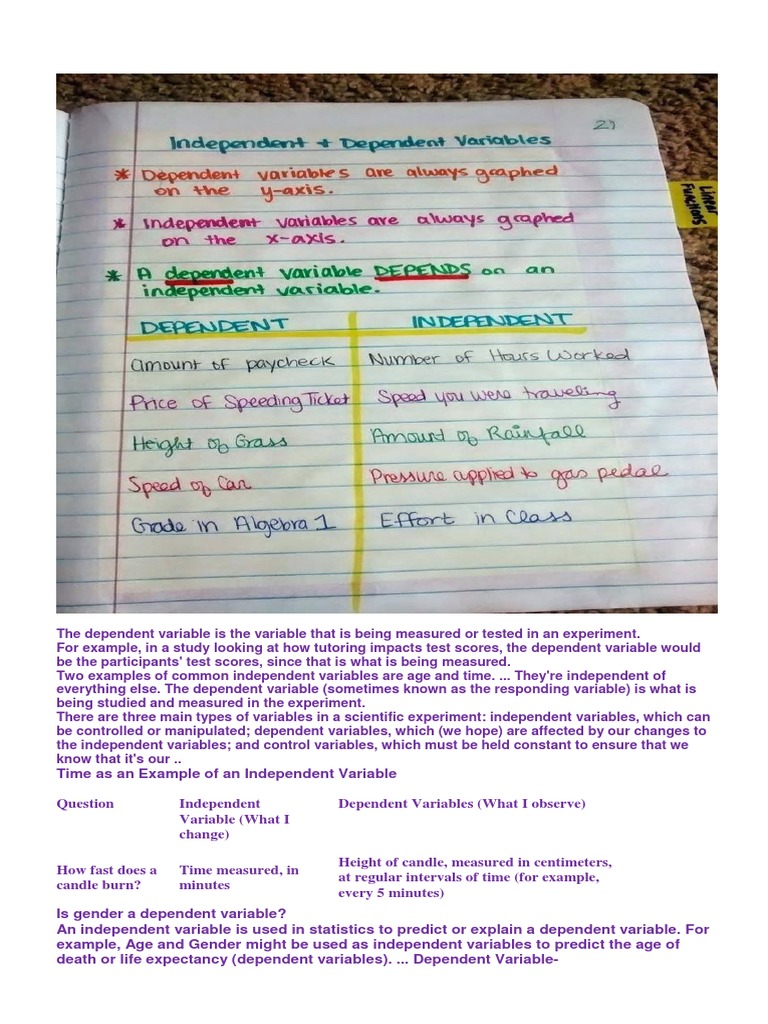 21
Independent + Dependent Variables
* Dependent variables are always graphed
on the y-axis.
* Independent variables are always graphed
on the x-axis.
* A dependent variable DEPENDS on an
independent variable.
Linear
Functions
DEPENDENT INDEPENDENT
Amount of paycheck Number of Hours Worked
Price of Speeding Ticket Speed you were traveling
Height of Grass Amount of Rainfall
Speed of Car Pressure applied to gas pedal
Grade in Algebra 1 Effort in Class
The dependent variable is the variable that is being measured or tested in an experiment.
For example, in a study looking at how tutoring impacts test scores, the dependent variable would
be the participants' test scores, since that is what is being measured.
Two examples of common independent variables are age and time. ... They're independent of
everything else. The dependent variable (sometimes known as the responding variable) is what is
being studied and measured in the experiment.
There are three main types of variables in a scientific experiment: independent variables, which can
be controlled or manipulated; dependent variables, which (we hope) are affected by our changes to
the independent variables; and control variables, which must be held constant to ensure that we
know that it's our ..
Time as an Example of an Independent Variable
Question Independent Dependent Variables (What I observe)
Variable (What I
change)
Height of candle, measured in centimeters,
How fast does a Time measured, in at regular intervals of time (for example,
candle burn? minutes every 5 minutes)
Is gender a dependent variable?
An independent variable is used in statistics to predict or explain a dependent variable. For
example, Age and Gender might be used as independent variables to predict the age of
death or life expectancy (dependent variables). ... Dependent Variable-